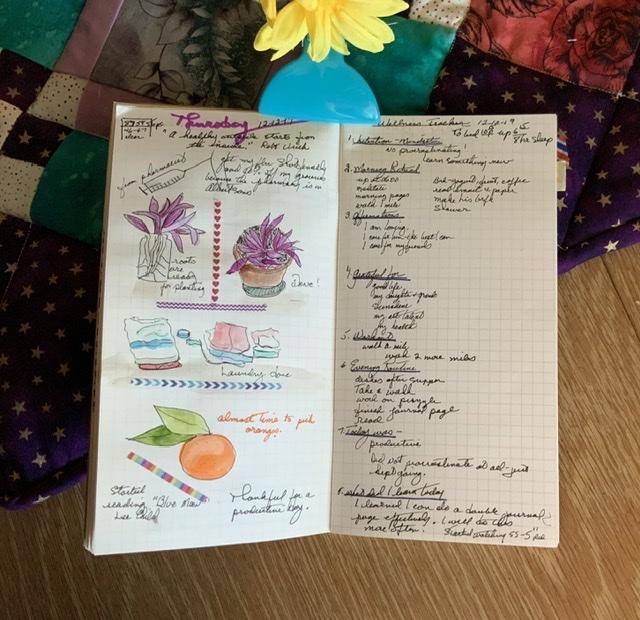 Thursday
"A healthy outside starts from
the inside." Robt Urich
from pharmacies
because the pharmacy is in
Albertsons
roots
are
ready
for planting
Done!
Laundry done
almost time to pick
oranges.
Started
reading "Blue Moon"
Lee Child
Thankful for a
productive day.
Wellness Tracker 12-12-19
To bed up
8hr sleep
1. Intention-Mindset
no procrastinating!
learn something new
2. Morning Ritual
up at
meditate
morning pages
walk 1 mile
coffee
read & paper
make his bfk
Shower
3. Affirmations
I am loving.
I care for best I can
I care for my friends
4. Grateful for
good life
my daughter &
my art talent
my health
5. Workout
walk a mile
walk 2 more miles
6. Evening Routine
dishes after supper
Take a walk
work on puzzle
finish journal page
read
7. Today was -
productive
Did not procrastinate at all - just
kept going.
8. What did I learn today
I learned I can do a double journal
page effectively. I will do this
more often.
Started watching